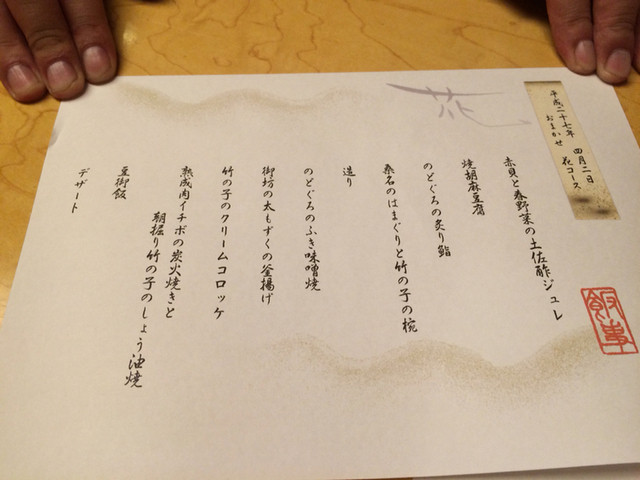 平成二十七年 四月二日
おまかせ 花コース
花
赤貝と春野菜の土佐酢ジュレ
焼胡麻豆腐
のどぐろの炙り鮨
桑名のはまぐりと竹の子の椀
造り
のどぐろのふき味噌焼
御坊の太もずくの釜揚げ
竹の子のクリームコロッケ
熟成肉イチボの炭火焼きと
朝掘り竹の子のしょう油焼
豆御飯
デザート